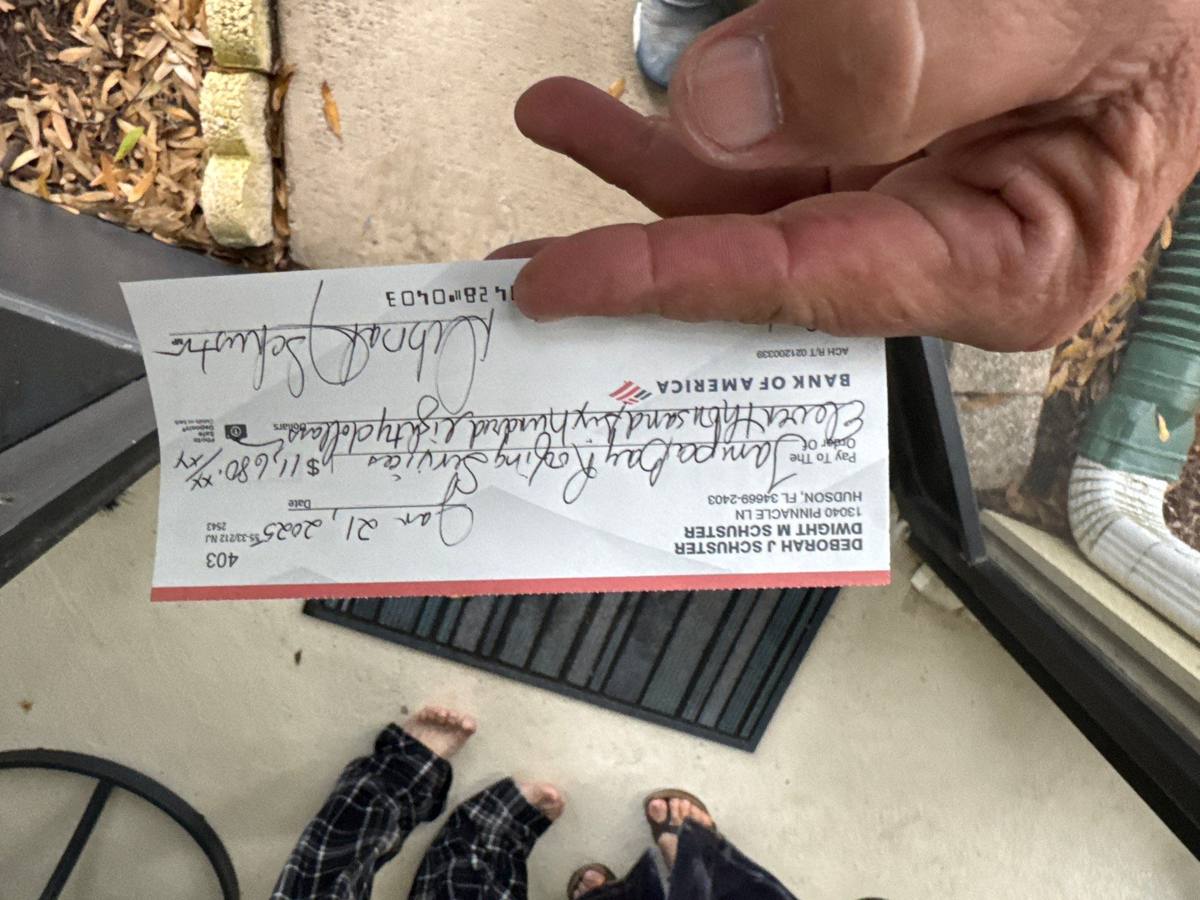 DEBORAH J SCHUSTER
DWIGHT M SCHUSTER
13040 PINNACLE LN
HUDSON, FL 34669-2403
403
55-33/212 NJ
2543
Jan 21, 2025
Date
Pay To The
Order Of
Tampa Bay Roofing Services
$ 11,680. xx/xx
Eleven thousand six hundred eighty dollars
Dollars
Photo
Safe
Deposit®
Details on back
BANK OF AMERICA
ACH R/T 021200339
Deborah J Schuster
MP
428⑈0403